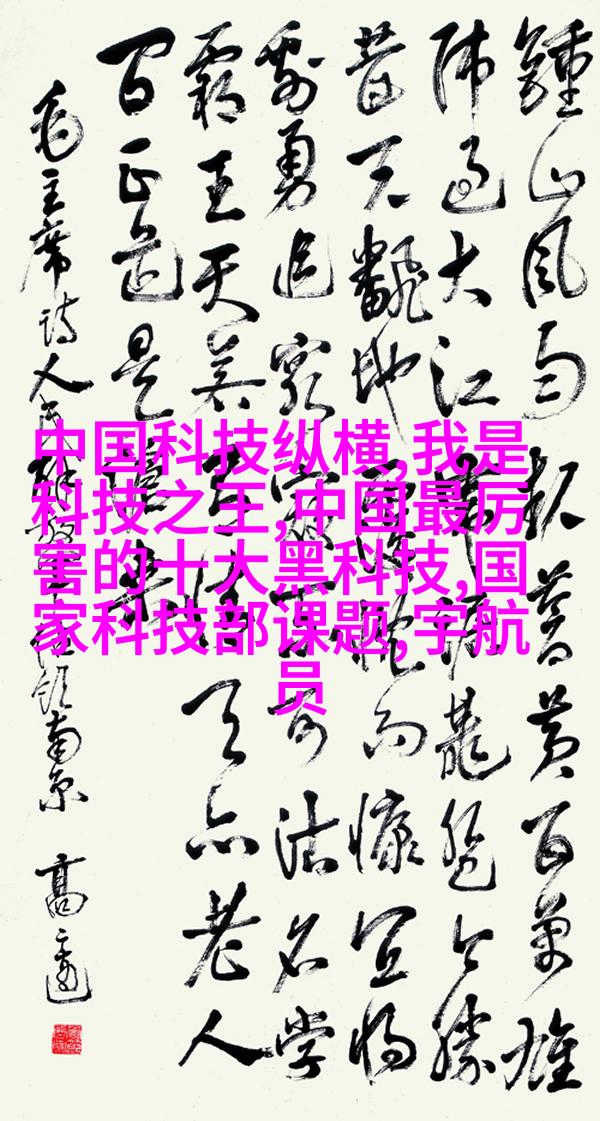 中国科技纵横,我是
科技之王,中国最厉
害的十大黑科技,国
家科技部课题,宇航
员
鍾山风雨起蒼黄百萬雄
师过大江虎踞龍盤今勝
昔天飜地覆慨而慷宜将
剩勇追穷寇不可沽名学
霸王天若有情天亦老人
间正道是滄桑
毛主席诗人民解放军占领南京 高